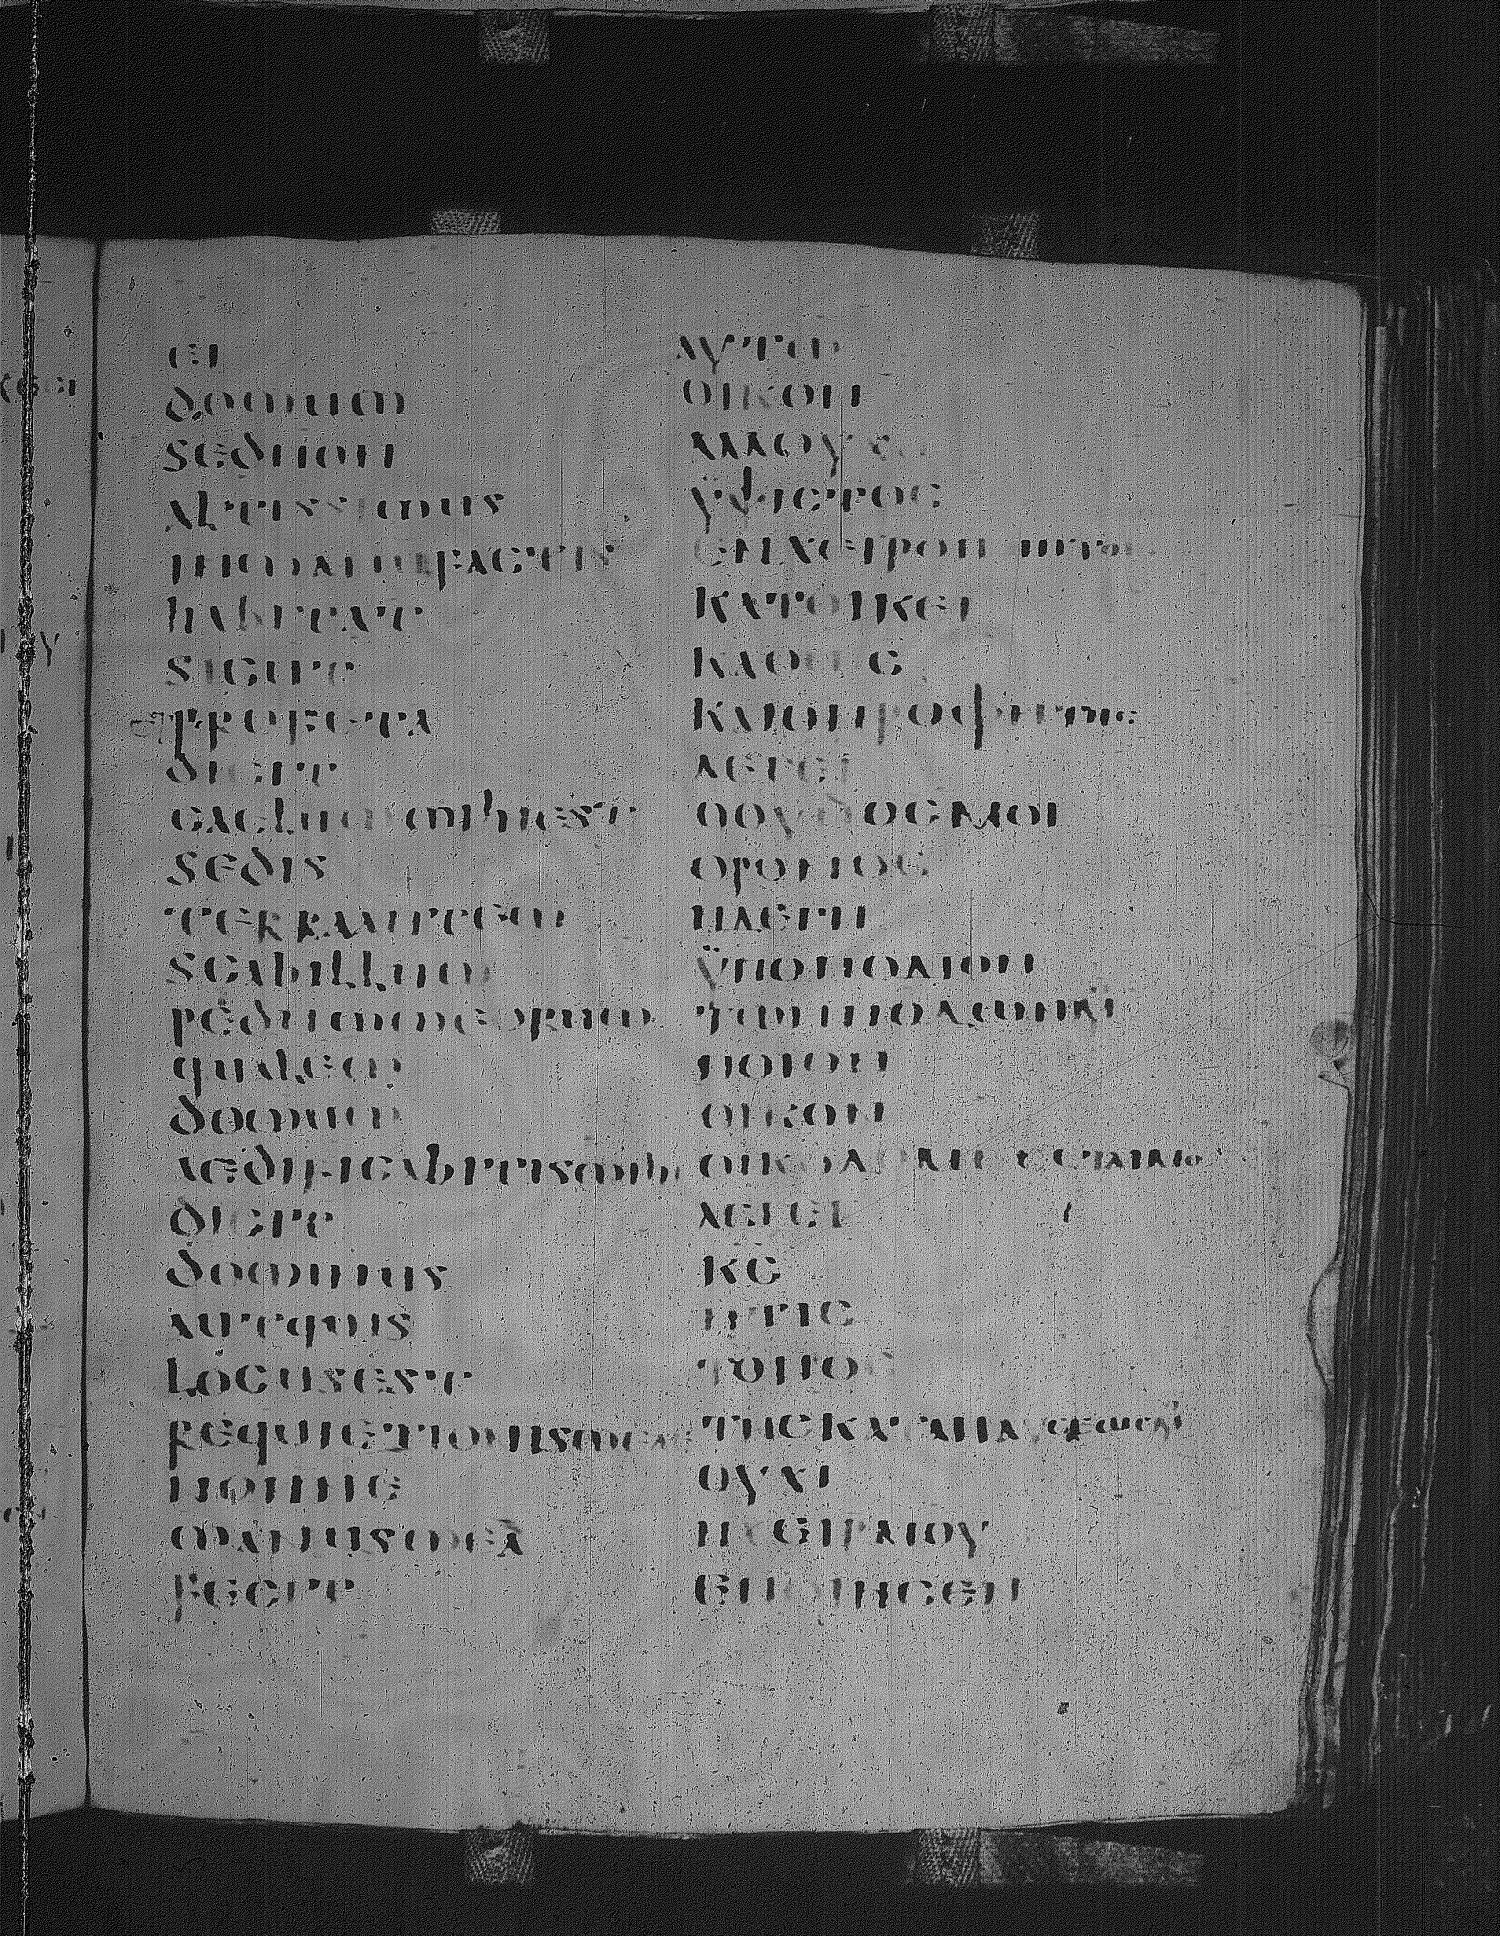 ei
domum
sednon
altissimus
inmanufactis
habitat
sicut
etprofeta
dicit
caelummihiest
sedis
terraautem
scabillum
pedummeorum
qualem
domum
aedificabitismihi
dicit
dominus
autquis
locusest
requietionismeae
nonne
manusmea
fecit
αυτω
οικον
αλλουχ
ϋψιστος
ενχειροποιητοις
κατοικει
καθως
καιοπροφητης
λεγει
οουνοςμοι
οθρονος
ηδεγη
ϋποποδιον
τωνποδωνμου
ποιον
οικον
οικοδομησεταιμοι
λεγει
κς
ητις
τοπος
τηςκαταπαυσεωςμου
ουχι
ηχειρμου
εποιησεν